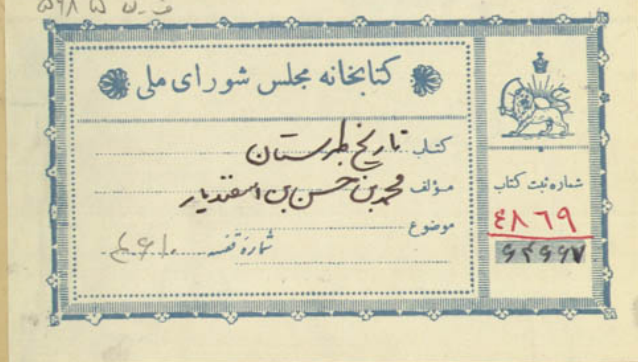 کتابخانه مجلس شورای ملی
کتاب تاریخ طبرستان
مؤلف محمد بن حسن بن اسفندیار
موضوع
شماره قفسه
شماره ثبت کتاب
٤٨٦٩